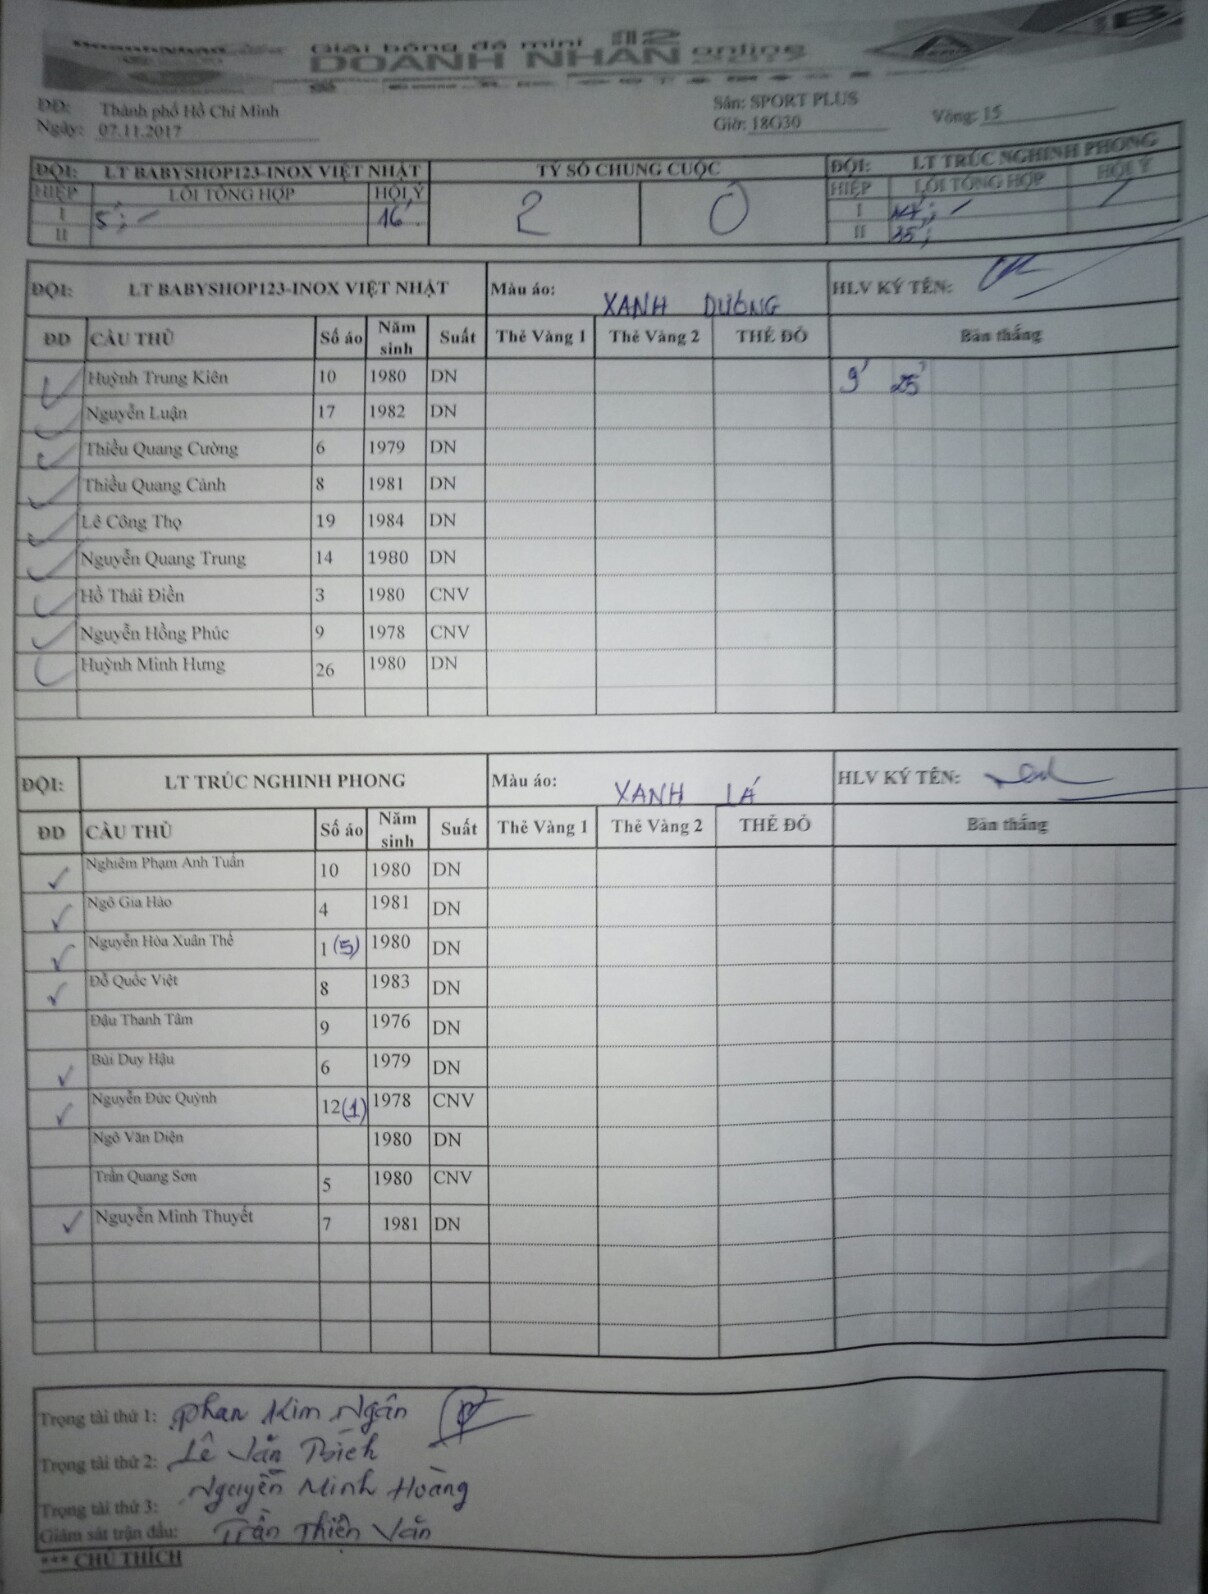 Giải bóng đá mini 112
DOANH NHÂN online 2017
ĐĐ: Thành phố Hồ Chí Minh
Sân: SPORT PLUS
Ngày: 07.11.2017
Giờ: 18G30
Vòng: 15
ĐỘI: LT BABYSHOP123-INOX VIỆT NHẬT TỶ SỐ CHUNG CUỘC ĐỘI: LT TRÚC NGHINH PHONG
HIỆP LỖI TỔNG HỢP HỘI Ý 2 0 HIỆP LỖI TỔNG HỢP HỘI Ý
I 5'; - 16' I 14'; -
II II 35';
ĐỘI: LT BABYSHOP123-INOX VIỆT NHẬT Màu áo: XANH DƯƠNG HLV KÝ TÊN:
ĐD CẦU THỦ Số áo Năm sinh Suất Thẻ Vàng 1 Thẻ Vàng 2 THẺ ĐỎ Bàn thắng
Huỳnh Trung Kiên 10 1980 DN 9' 25'
Nguyễn Luận 17 1982 DN
Thiều Quang Cường 6 1979 DN
Thiều Quang Cảnh 8 1981 DN
Lê Công Thọ 19 1984 DN
Nguyễn Quang Trung 14 1980 DN
Hồ Thái Điền 3 1980 CNV
Nguyễn Hồng Phúc 9 1978 CNV
Huỳnh Minh Hưng 26 1980 DN
ĐỘI: LT TRÚC NGHINH PHONG Màu áo: XANH LÁ HLV KÝ TÊN:
ĐD CẦU THỦ Số áo Năm sinh Suất Thẻ Vàng 1 Thẻ Vàng 2 THẺ ĐỎ Bàn thắng
Nghiêm Phạm Anh Tuấn 10 1980 DN
Ngô Gia Hào 4 1981 DN
Nguyễn Hòa Xuân Thế 1 (5) 1980 DN
Đỗ Quốc Việt 8 1983 DN
Đậu Thanh Tâm 9 1976 DN
Bùi Duy Hậu 6 1979 DN
Nguyễn Đức Quỳnh 12 (1) 1978 CNV
Ngô Văn Diện 1980 DN
Trần Quang Sơn 5 1980 CNV
Nguyễn Minh Thuyết 7 1981 DN
Trọng tài thứ 1: Phan Kim Ngân
Trọng tài thứ 2: Lê Văn Bích
Trọng tài thứ 3: Nguyễn Minh Hoàng
Giám sát trận đấu: Trần Thiện Văn
*** CHÚ THÍCH